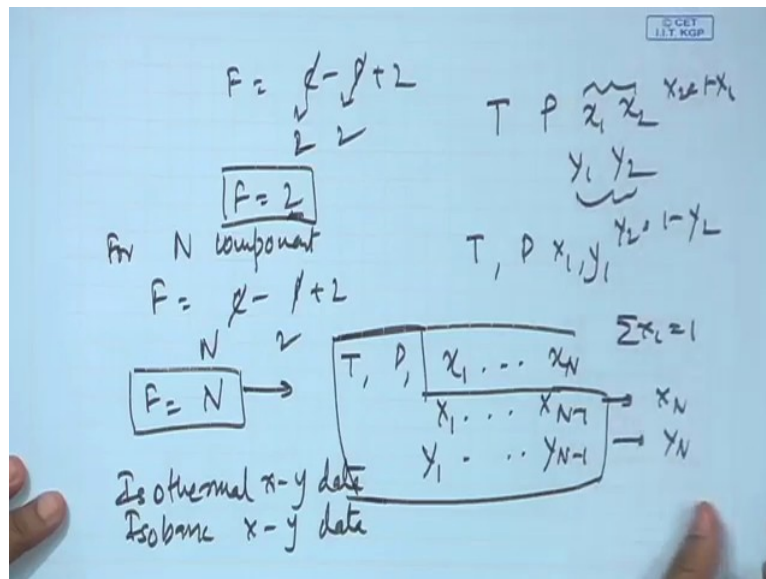 © CET
I.I.T. KGP
F = C - P + 2
2 2
F = 2
For N component
F = C - P + 2
N 2
F = N →
Isothermal x-y data
Isobaric x-y data
T P x₁ x₂ x₂ = 1-x₁
y₁ y₂
T, P x₁, y₁ y₂ = 1-y₂
Σxᵢ = 1
T, P, x₁ ... xN
x₁ ... xN-1 → xN
y₁ ... yN-1 → yN